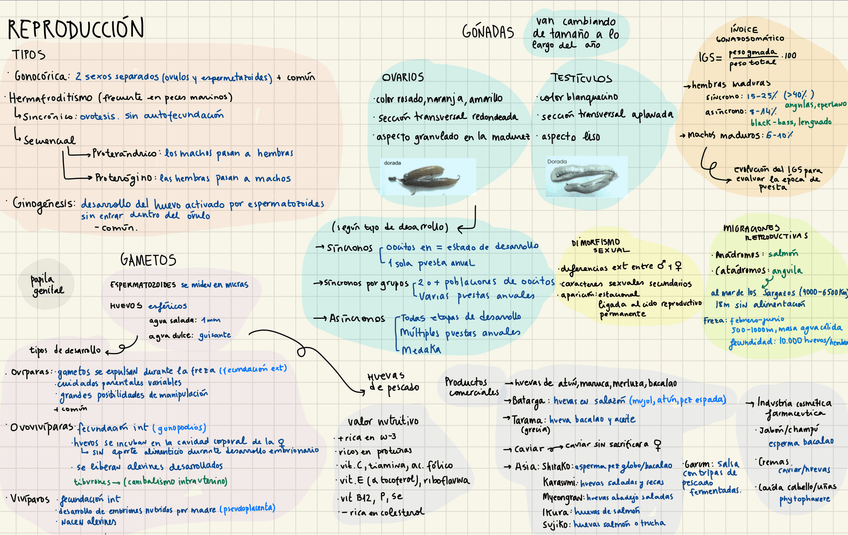 REPRODUCCIÓN
TIPOS
· Gonocórica: 2 sexos separados (óvulos y espermatozoides) + común
· Hermafroditismo (frecuente en peces marinos)
↳ Sincrónico: ovotesis. sin autofecundación
↳ Secuencial
→ Proterándrico: los machos pasan a hembras
→ Proterógino: las hembras pasan a machos
· Ginogénesis: desarrollo del huevo activado por espermatozoides
sin entrar dentro del óvulo
- común.
GÓNADAS
van cambiando
de tamaño a lo
largo del año
OVARIOS
· color rosado, naranja, amarillo
· sección transversal redondeada
· aspecto granulado en la madurez
dorada
TESTÍCULOS
· color blanquecino
· sección transversal aplanada
· aspecto liso
Dorada
ÍNDICE
GONADOSOMÁTICO
IGS = peso gonada / peso total · 100
→ hembras maduras
síncrono: 15-25% (>40%)
anguilas, eperlano
asíncrono: 8-14%
black-bass, lenguado
→ Machos maduros: 6-10%
evolución del IGS para
evaluar la época de
puesta
(según tipo de desarrollo)
→ Síncronos
oocitos en = estado de desarrollo
1 sola puesta anual
→ Síncronos por grupos
2 o + poblaciones de oocitos
Varias puestas anuales
→ Asíncronos
Todas etapas de desarrollo
Múltiples puestas anuales
Medaka
DIMORFISMO
SEXUAL
· diferencias ext entre ♂ y ♀
· caracteres sexuales secundarios
· aparición: estacional
ligada al ciclo reproductivo
permanente
MIGRACIONES
REPRODUCTIVAS
· Anádromos: salmón
· Catádromos: anguila
al mar de los Sargazos (4000-6500Km)
18m sin alimentación
Freza: febrero-junio
300-1000m, masa agua cálida
fecundidad: 10.000 huevos/hembra
papila
genital
GAMETOS
ESPERMATOZOIDES se miden en micras
HUEVOS esféricos
agua salada: 1mm
agua dulce: guisante
tipos de desarrollo
Ovíparas: · gametos se expulsan durante la freza (fecundación ext)
· cuidados parentales variables
· grandes posibilidades de manipulación
+ común
Ovovivíparas · fecundación int (gonopodios)
· huevos se incuban en la cavidad corporal de la ♀
↳ sin aporte alimenticio durante desarrollo embrionario
· se liberan alevines desarrollados
tiburones → (canibalismo intrauterino)
Vivíparos · fecundación int
· desarrollo de embriones nutridos por madre (pseudoplacenta)
· nacen alevines
huevas
de pescado
valor nutritivo
· + rica en ω-3
· ricos en proteínas
· vit. C, tiamina, ac. fólico
· vit. E (α tocoferol), riboflavina
· vit B12, P, Se
· - rica en colesterol
Productos
comerciales
→ huevas de atún, maruca, merluza, bacalao
→ Batarga: huevas en salazón (mujol, atún, pez espada)
→ Tarama: hueva bacalao y aceite
(grecia)
→ Caviar → caviar sin sacrificar a ♀
→ Asia: Shirako: esperma pez globo/bacalao
Karasumi: huevas saladas y secas
Myeongran: huevas abadejo saladas
Ikura: huevas de salmón
Sujiko: huevas salmón o trucha
· Garum: salsa
con tripas de
pescado
fermentadas.
→ Industria cosmética
farmacéutica
· Jabón/champú
esperma bacalao
· Cremas
caviar/huevas
· Caída cabello/uñas
phytophanere